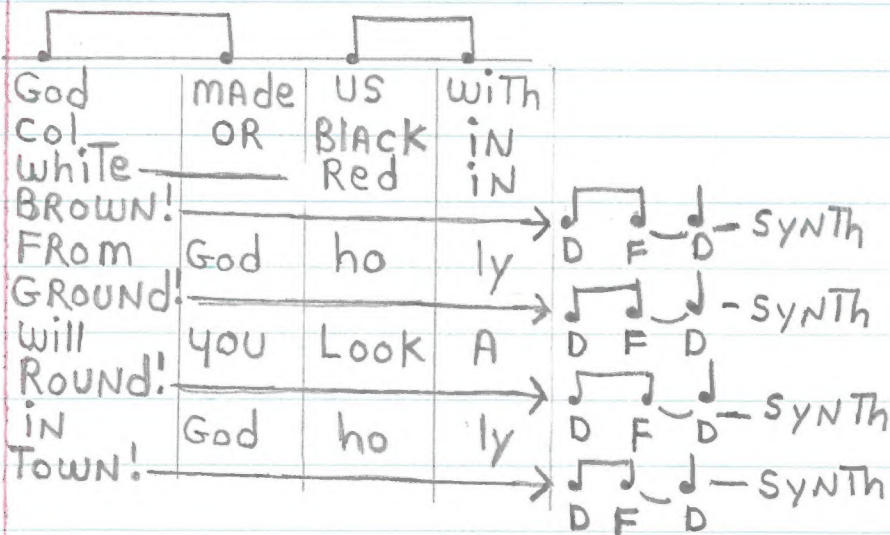 God mAde US wiTh
Col OR BlAck iN
White Red iN
BROWN! D F D SYNTh
FRom God ho ly
GROUNd! D F D SYNTh
Will you Look A
ROUNd! D F D SYNTh
iN God ho ly
TOWN! D F D SYNTh